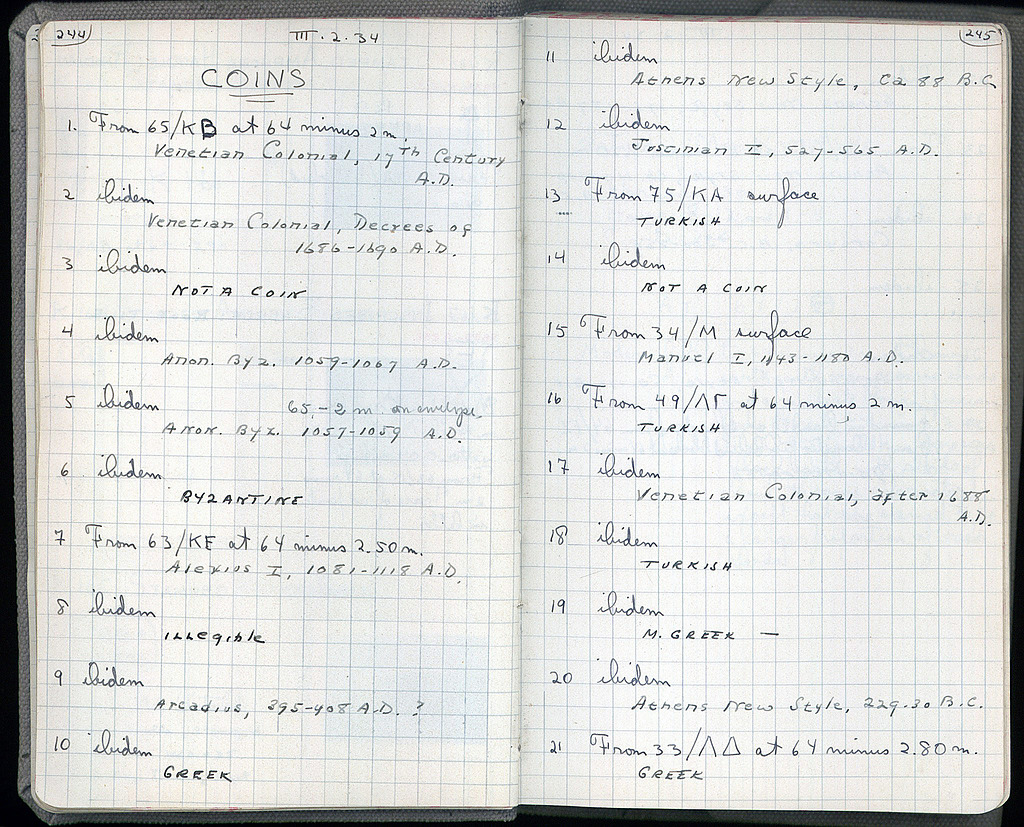 244
III.2.34
COINS
1. From 65/ΚΒ at 64 minus 2m.
Venetian Colonial, 17th Century
A.D.
2 ibidem
Venetian Colonial, Decrees of
1686-1690 A.D.
3 ibidem
NOT A COIN
4 ibidem
Anon. Byz. 1059-1067 A.D.
5 ibidem 65,-2m on envelope
Anon. Byz. 1057-1059 A.D.
6 ibidem
BYZANTINE
7 From 63/ΚΕ at 64 minus 2.50m.
Alexius I, 1081-1118 A.D.
8 ibidem
ILLegible
9 ibidem
Arcadius, 395-408 A.D. ?
10 ibidem
GREEK
245
11 ibidem
Athens New Style, ca 88 B.C.
12 ibidem
Justinian I, 527-565 A.D.
13 From 75/ΚΑ surface
TURKISH
14 ibidem
NOT A COIN
15 From 34/Μ surface
Manuel I, 1143-1180 A.D.
16 From 49/ΛΓ at 64 minus 2 m.
TURKISH
17 ibidem
Venetian Colonial, after 1688
A.D.
18 ibidem
TURKISH
19 ibidem
M. GREEK —
20 ibidem
Athens New Style, 229-30 B.C.
21 From 33/ΛΔ at 64 minus 2.80m.
GREEK